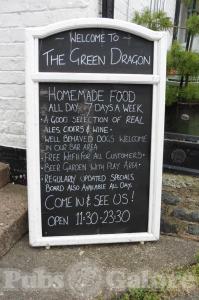 WELCOME TO
THE GREEN DRAGON
HOMEMADE FOOD
ALL DAY 7 DAYS A WEEK
• A GOOD SELECTION OF REAL
ALES CIDERS & WINE •
• WELL BEHAVED DOGS WELCOME
IN OUR BAR AREA
• FREE WIFI FOR ALL CUSTOMERS •
• BEER GARDEN WITH PLAY AREA •
• REGULARLY UPDATED SPECIALS
BOARD ALSO AVAILABLE ALL DAY.
COME IN & SEE US!
OPEN 11:30-23:30
Pubs Galore